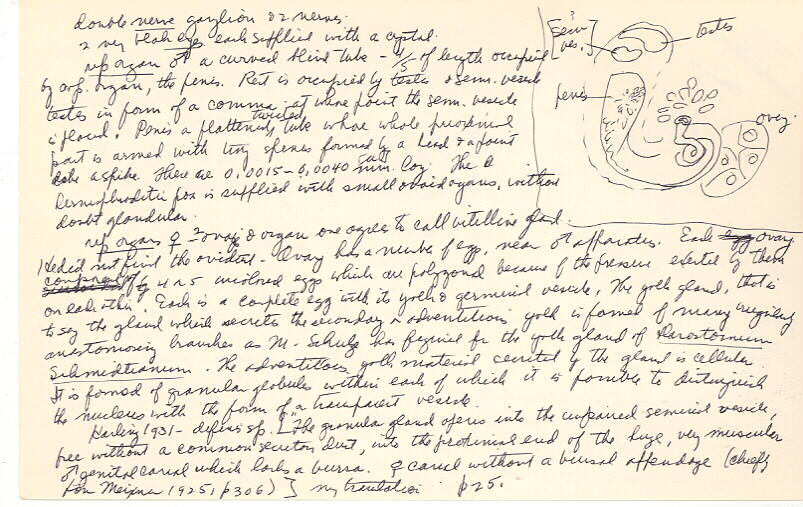 double nerve ganglion & 2 nerves.
2 very black eyes each supplied with a crystal.
rep organ ♂ a curved blind tube - 4/5 of length occupied
by organ, the penis. Rest is occupied by testes & sem. vesicle
testes in form of a comma - at whose point the sem. vesicle
is placed. Penis a flattened, twisted tube whose whole proximal
part is armed with tiny spines formed by a head & a point
like a spike. These are 0.0015-0.0040 mm. long. The
hermaphroditic pore is supplied with small ovoid organs, without
doubt glandular.
rep organs ♀ - 2 ovaries & organ one agrees to call vitelline gland.
He did not find the oviducts - Ovary has a number of eggs, near ♂ apparatus. Each ovary
composed of by 4 or 5 uncolored eggs which are polygonal because of the pressure exerted by them
on each other. Each is a complete egg with its yolk & germinal vesicle. The yolk gland, that is
to say the gland which secretes the secondary or adventitious yolk is formed of many irregularly
anastomosing branches as M. Schulze has figured for the yolk gland of Derostomum
Schmidtianum. The adventitious yolk material secreted by the gland is cellular.
It is formed of granular globules within each of which it is possible to distinguish
the nucleus with the form of a transparent vesicle.
1931 - defines sp. [The granular gland opens into the unpaired seminal vesicle,
free without a common secretory duct, into the proximal end of the huge, very muscular
♂ genital canal which lacks a bursa. ♀ canal without a bursal appendage (chiefly
from Meixner 1925, p306)] my translation p25.
?
sem.
ves.
testes
penis
ovary